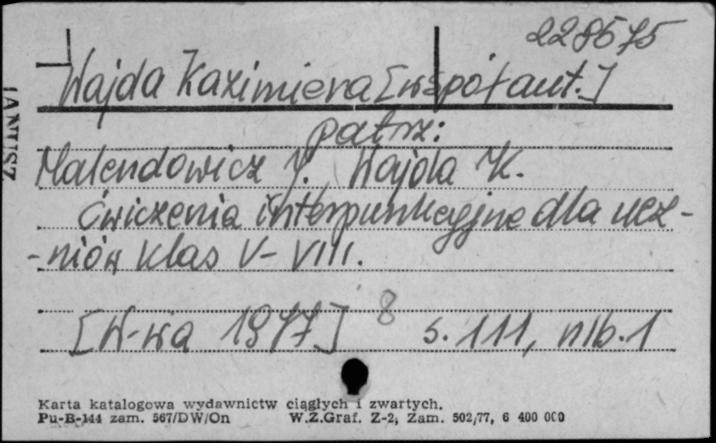 228575
Wajda Kazimiera [współaut.]
patrz:
Malendowicz J. Wajda K.
Ćwiczenia interpunkcyjne dla ucz-
-niów klas V-VIII.
[W-wa 1977] 8 s. 111, nlb. 1
Karta katalogowa wydawnictw ciągłych i zwartych.
Pu-B-144 zam. 567/DW/On W.Z.Graf. Z-2, Zam. 502/77, 6 400 000
JANTUSZ